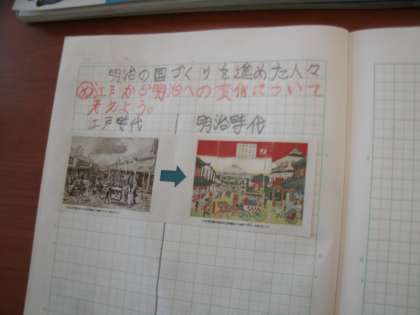 明治の国づくりを進めた人々
め江戸から明治への変化について
考えよう。
江戸時代
明治時代